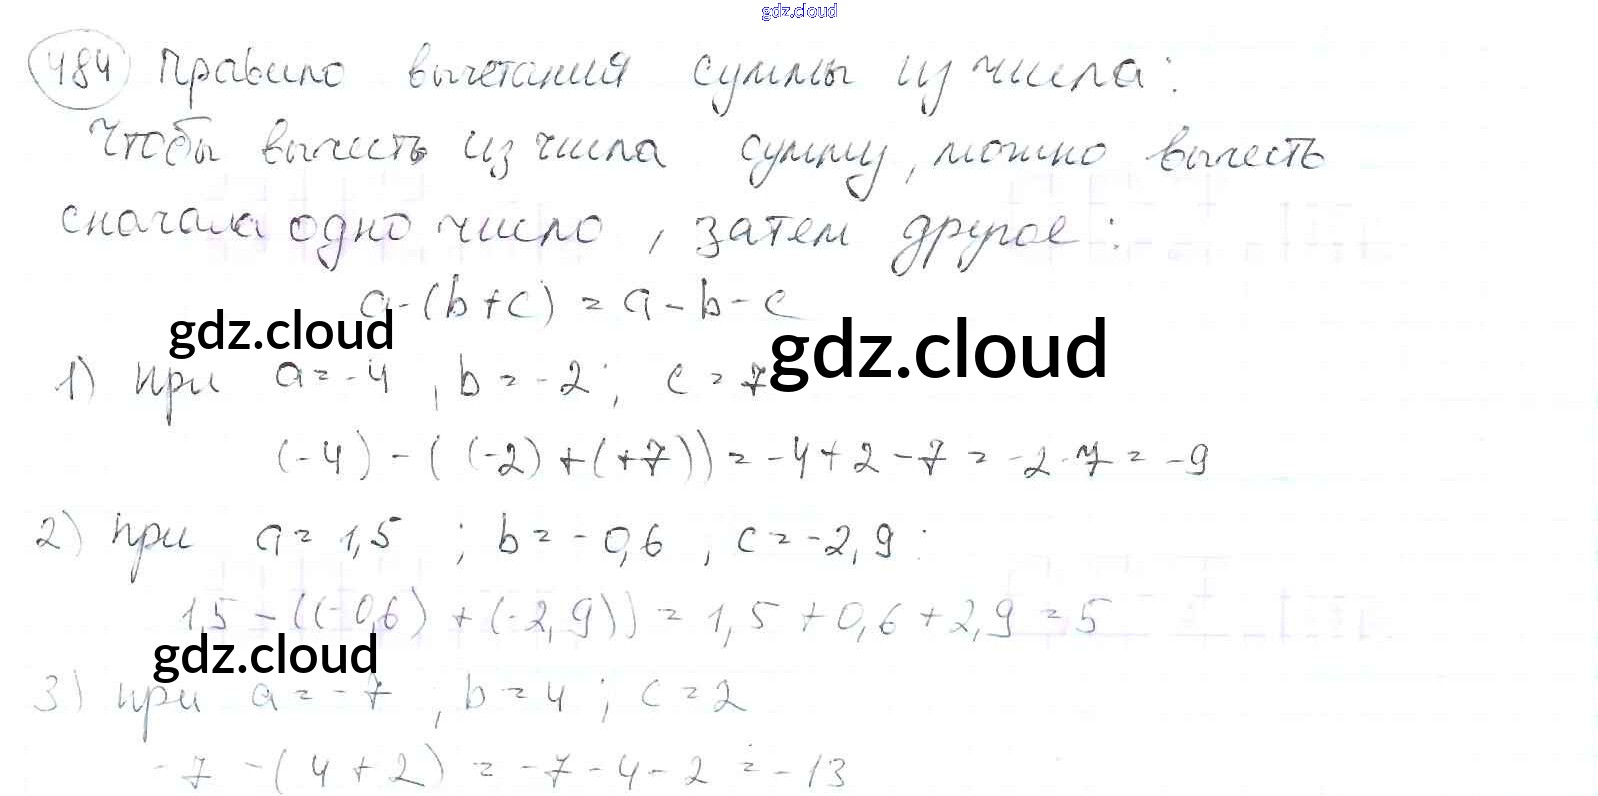 gdz.cloud
484 Правило вычетания суммы из числа:
Чтобы вычесть из числа сумму, можно вычесть
сначала одно число, затем другое:
a-(b+c) = a-b-c
gdz.cloud
gdz.cloud
1) при a=-4, b=-2; c=7
(-4)-((-2)+(+7))=-4+2-7=-2-7=-9
2) при a=1,5; b=-0,6, c=-2,9:
1,5-((-0,6)+(-2,9))=1,5+0,6+2,9=5
gdz.cloud
3) при a=-7, b=4; c=2
-7-(4+2)=-7-4-2=-13